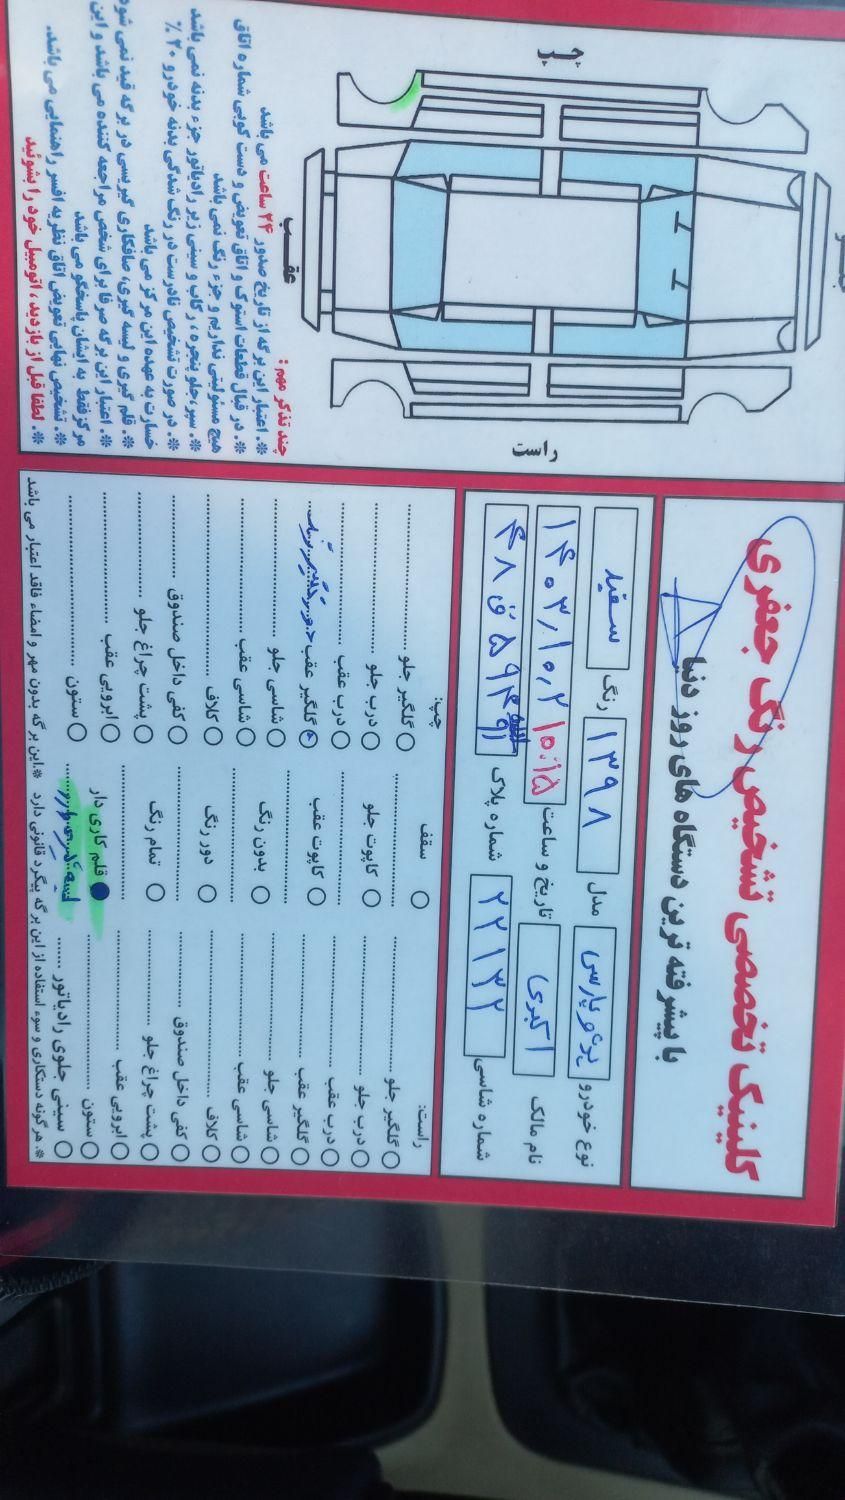 کلینیک تخصصی تشخیص رنگ جعفری
با پیشرفته ترین دستگاه های روز دنیا
نوع خودرو پژو پارسی مدل ۱۳۹۸ رنگ سفید
نام مالک اکبری تاریخ و ساعت ۱۴۰۳,۱۰,۲ ۱۰:۱۵
شماره شاسی ۲۲۱۳۲ شماره پلاک
راست:
گلگیر جلو
درب جلو
درب عقب
گلگیر عقب
شاسی جلو
شاسی عقب
کلاف
کفی داخل صندوق
پشت چراغ جلو
ابرویی عقب
ستون
سینی جلوی رادیاتور
سقف
کاپوت جلو
کاپوت عقب
بدون رنگ
دور رنگ
تمام رنگ
قلم کاری دار
لیسه گیری دارد
چپ:
گلگیر جلو
درب جلو
درب عقب
گلگیر عقب
شاسی جلو
شاسی عقب
کلاف
کفی داخل صندوق
پشت چراغ جلو
ابرویی عقب
ستون
*. هرگونه دستکاری و سوء استفاده از این برگه پیگرد قانونی دارد *. این برگه بدون مهر و امضاء فاقد اعتبار می باشد
چپ
عقب
راست
چند تذکر مهم :
*. اعتبار این برگه از تاریخ صدور ۲۴ ساعت می باشد
*. در قبال قطعات استوک و اتاق تعویض و دست کوبی شماره اتاق
هیچ مسئولیتی نداریم و جزء رنگ نمی باشد
*. سپر،جلو پنجره، رکاب و سینی زیر رادیاتور جزء بدنه نمی باشد
*. در صورت تشخیص نادرست در رنگ شدگی بدنه خودرو ۲۰ %
خسارت به عهده این مرکز می باشد
*. قلم گیری و لیسه گیری، صافکاری گیریسی در برگه قید نمی شود
*. اعتبار این برگه صرفا برای شخص مراجعه کننده می باشد و این
مرکز فقط به ایشان پاسخگو می باشد
*. تشخیص نهایی تعویض اتاق نظریه افسر راهنمایی می باشد.
*. لطفا قبل از بازدید، اتومبیل خود را بشوئید